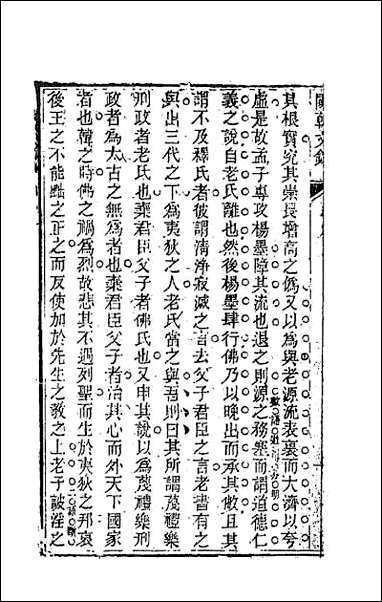 韓文
其根實究其崇長增高之為又以為與老源流表裏而大濟以夸
虛是故孟子專攻楊墨障其流也退之則源之務塞而謂道德仁
數語道分明
義之說自老氏離也然後楊墨肆行佛乃以晚出而承其敝且其
謂不及釋氏者彼謂清淨寂滅之言去父子君臣之言老皆有之
與出三代之下為夷狄之人老氏當之與吾則曰其所謂蔑禮樂
刑政者老氏也棄君臣父子者佛氏也又申其說以為蔑禮樂刑
政者為太古之無為者也棄君臣父子者治其心而外天下國家
者也韓之時佛之禍為烈故悲其不遇列聖而生於夷狄之邦哀
後王之不能黜之正之而反使加於先生之教之上老子詖淫之